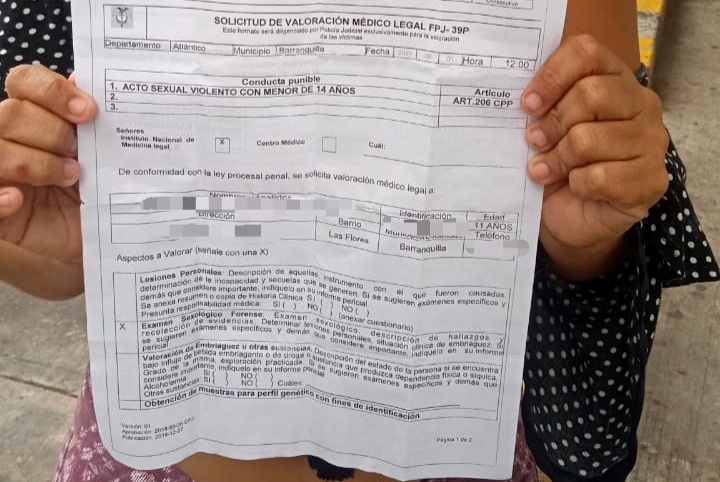 SOLICITUD DE VALORACIÓN MÉDICO LEGAL FPJ- 39P
Este formato será diligenciado por Policía Judicial exclusivamente para la valoración
de las víctimas
Departamento Atlántico Municipio Barranquilla Fecha Hora 12:00
Conducta punible Artículo
1. ACTO SEXUAL VIOLENTO CON MENOR DE 14 AÑOS ART.206 CPP
2.
3.
Señores
Instituto Nacional de Medicina legal X Centro Médico Cuál:
De conformidad con la ley procesal penal, se solicita valoración médico legal a:
Identificación Edad
11 AÑOS
Dirección Barrio Teléfono
Las Flores Barranquilla
Aspectos a Valorar (señale con una X)
Lesiones Personales: Descripción de aquellas, instrumento con el que fueron causadas,
determinación de la incapacidad y secuelas que se generen. Si se sugieren exámenes específicos y
demás que considere importante, indíquelo en su informe pericial.
Se anexa resumen o copia de Historia Clínica SI( ) NO( )
Presunta responsabilidad médica: SI( ) NO( ) (anexar cuestionario)
X Examen Sexológico Forense: Examen sexológico, descripción de hallazgos y
recolección de evidencias. Determinar lesiones personales, situación clínica de embriaguez, si
se sugieren exámenes específicos y demás que considere importante, indíquelo en su informe
pericial
Valoración de Embriaguez u otras sustancias. Descripción del estado de la persona si se encuentra
bajo influjo de bebida embriagante o de droga o sustancia que produzca dependencia física o síquica.
Grado de la misma, exploración practicada. Si se sugieren exámenes específicos y demás que
considere importante, indíquelo en su informe pericial
Alcoholemia: SI( ) NO( )
Otras sustancias: SI( ) NO( ) Cuáles
Obtención de muestras para perfil genético con fines de identificación
Versión 01
Página 1 de 2